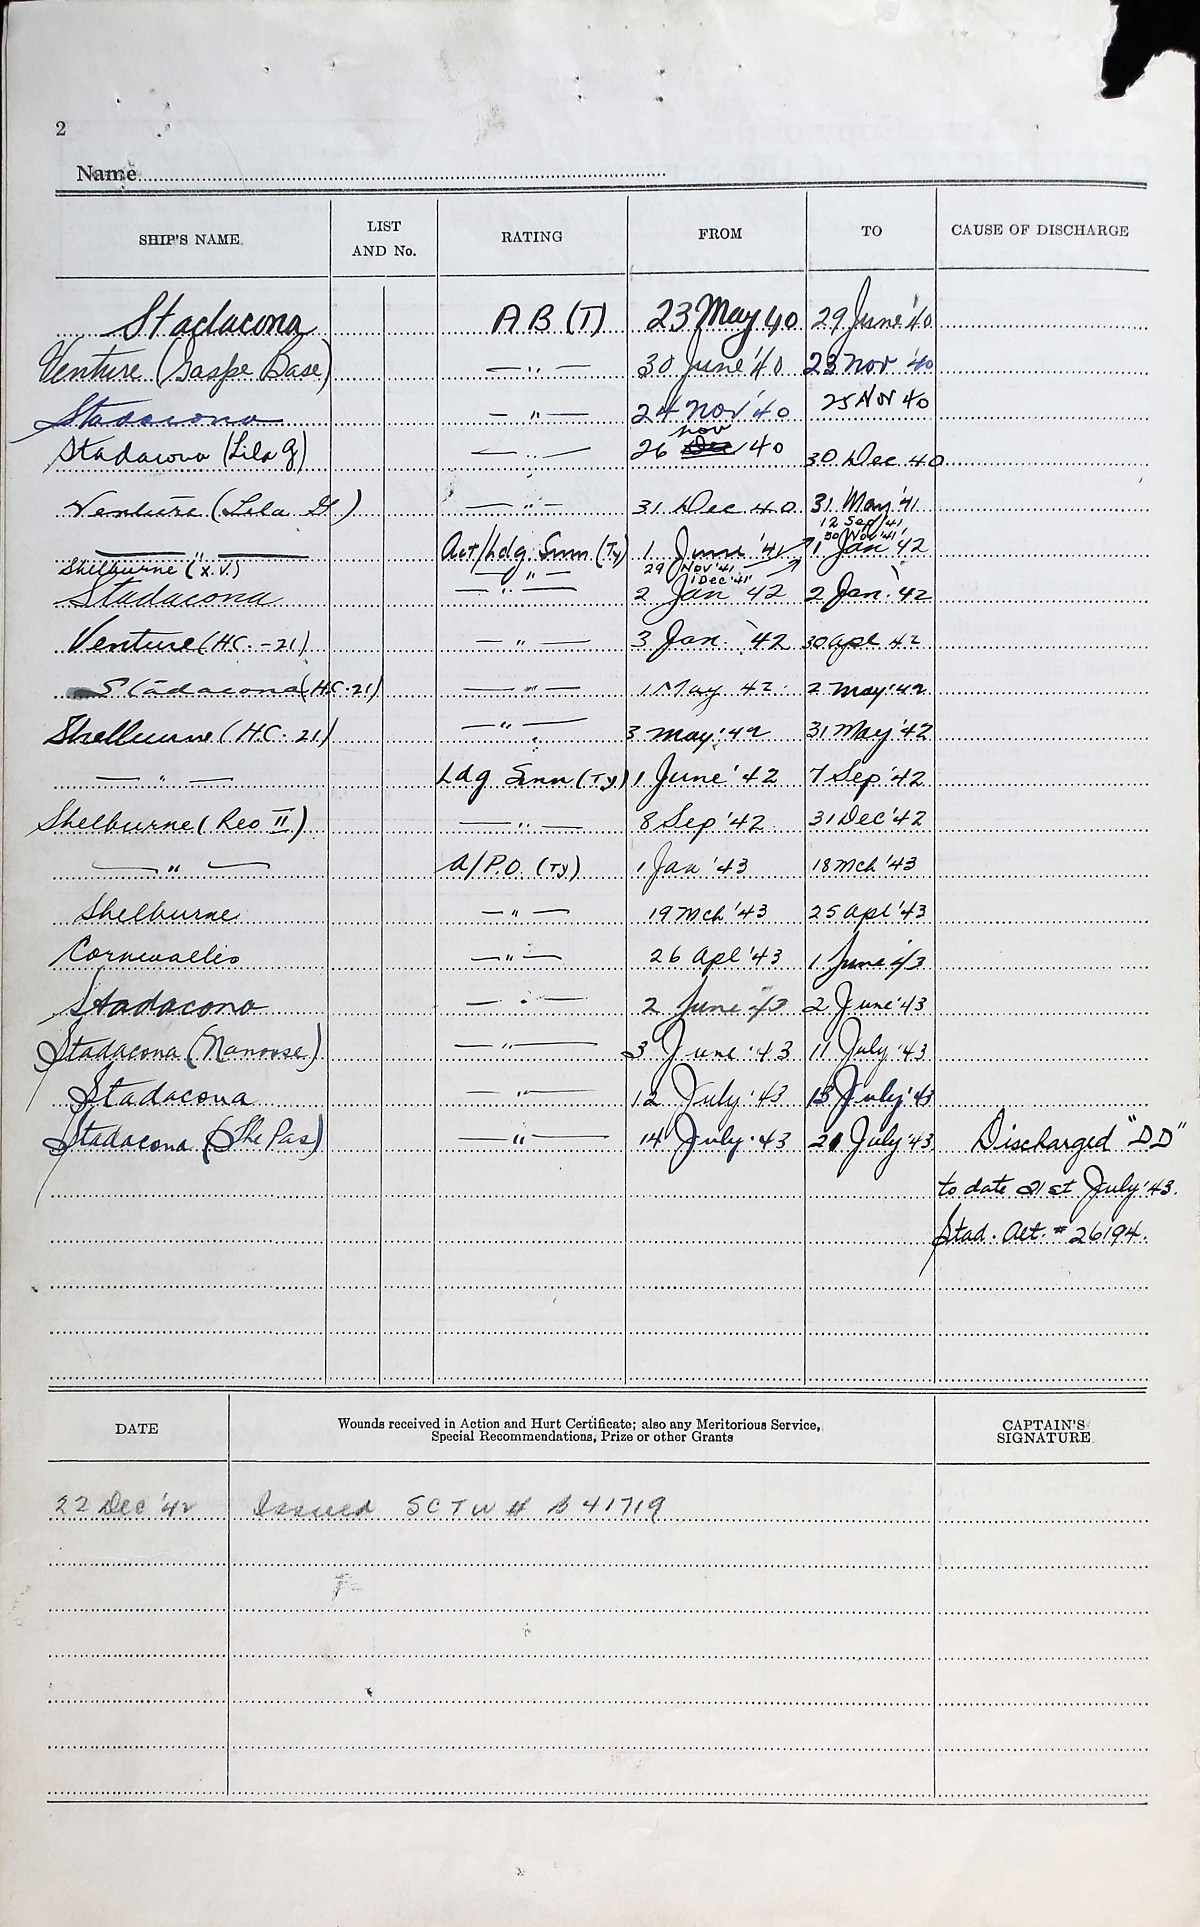 2
Name
SHIP'S NAME LIST AND No. RATING FROM TO CAUSE OF DISCHARGE
Stadacona A B (T) 23 May 40 29 June '40
Venture (Gaspe Base) — " — 30 June '40 23 Nov '40
Stadacona — " — 24 Nov '40 25 Nov 40
Stadacona (Lila G) — " — 26 Nov 40 30 Dec 40
Venture (Lila G) — " — 31 Dec 40 31 May '41
12 Sep '41
— " — Act/Ldg Smn (Ty) 1 June '41 30 Nov '41 1 Jan '42
Shelburne (X.V.) — " — 29 Nov '41
1 Dec '41
Stadacona — " — 2 Jan '42 2 Jan. '42
Venture (HC.-21) — " — 3 Jan. '42 30 Apl 42
Stadacona (HC-21) — " — 1 May 42 2 May '42
Shelburne (H.C. 21) — " — 3 May '42 31 May '42
— " — Ldg Smn (Ty.) 1 June '42 7 Sep '42
Shelburne (Reo II) — " — 8 Sep '42 31 Dec '42
— " — A/P.O. (Ty) 1 Jan '43 18 Mch '43
Shelburne — " — 19 Mch '43 25 Apl '43
Cornwallis — " — 26 Apl '43 1 June '43
Stadacona — " — 2 June '43 2 June '43
Stadacona (Nanoose) — " — 3 June '43 11 July '43
Stadacona — " — 12 July '43 13 July '43
Stadacona (The Pas) — " — 14 July '43 21 July '43 Discharged "DD"
to date 21st July '43.
Stad. Alt. # 26194.
DATE Wounds received in Action and Hurt Certificate; also any Meritorious Service, Special Recommendations, Prize or other Grants CAPTAIN'S SIGNATURE
22 Dec '42 Issued SCTW # B 41719